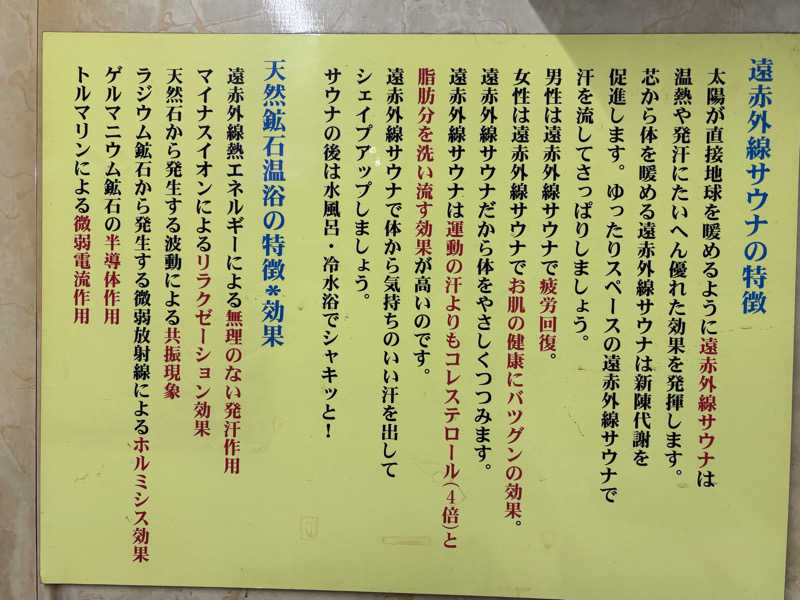 遠赤外線サウナの特徴
太陽が直接地球を暖めるように遠赤外線サウナは
温熱や発汗にたいへん優れた効果を発揮します。
芯から体を暖める遠赤外線サウナは新陳代謝を
促進します。ゆったりスペースの遠赤外線サウナで
汗を流してさっぱりしましょう。
男性は遠赤外線サウナで疲労回復。
女性は遠赤外線サウナでお肌の健康にバツグンの効果。
遠赤外線サウナだから体をやさしくつつみます。
遠赤外線サウナは運動の汗よりもコレステロール(4倍)と
脂肪分を洗い流す効果が高いのです。
遠赤外線サウナで体から気持ちのいい汗を出して
シェイプアップしましょう。
サウナの後は水風呂・冷水浴でシャキッと!
天然鉱石温浴の特徴*効果
遠赤外線熱エネルギーによる無理のない発汗作用
マイナスイオンによるリラクゼーション効果
天然石から発生する波動による共振現象
ラジウム鉱石から発生する微弱放射線によるホルミシス効果
ゲルマニウム鉱石の半導体作用
トルマリンによる微弱電流作用